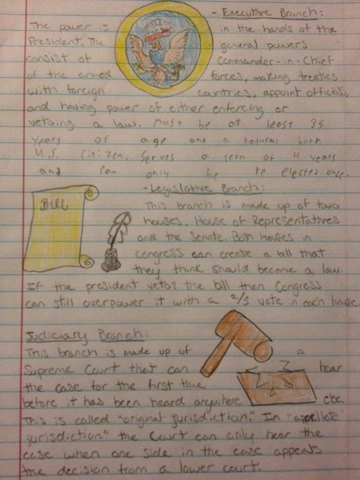 - Executive Branch:
The power is in the hands of the
President. The general powers
consist of Commander-in-Chief
of the armed forces, making treaties
with foreign countries, appoint officials
and having power of either enforcing or
vetoing a law. Must be at least 35
years of age and a natural born
U.S. Citizen. Serves a term of 4 years
and can only be re elected once.
- Legislative Branch:
Bill
This branch is made up of two
houses. House of Representatives
and the Senate. Both houses in
congress can create a bill that
they think should become a law.
If the president vetos the bill then Congress
can still overpower it with a 2/3 vote in each house
Judiciary Branch:
This branch is made up of a
Supreme Court that can hear
the case for the first time
before it has been heard anywhere else.
This is called "original jurisdiction." In "appellate
jurisdiction" the Court can only hear the
case when one side in the case appeals
the decision from a lower court.